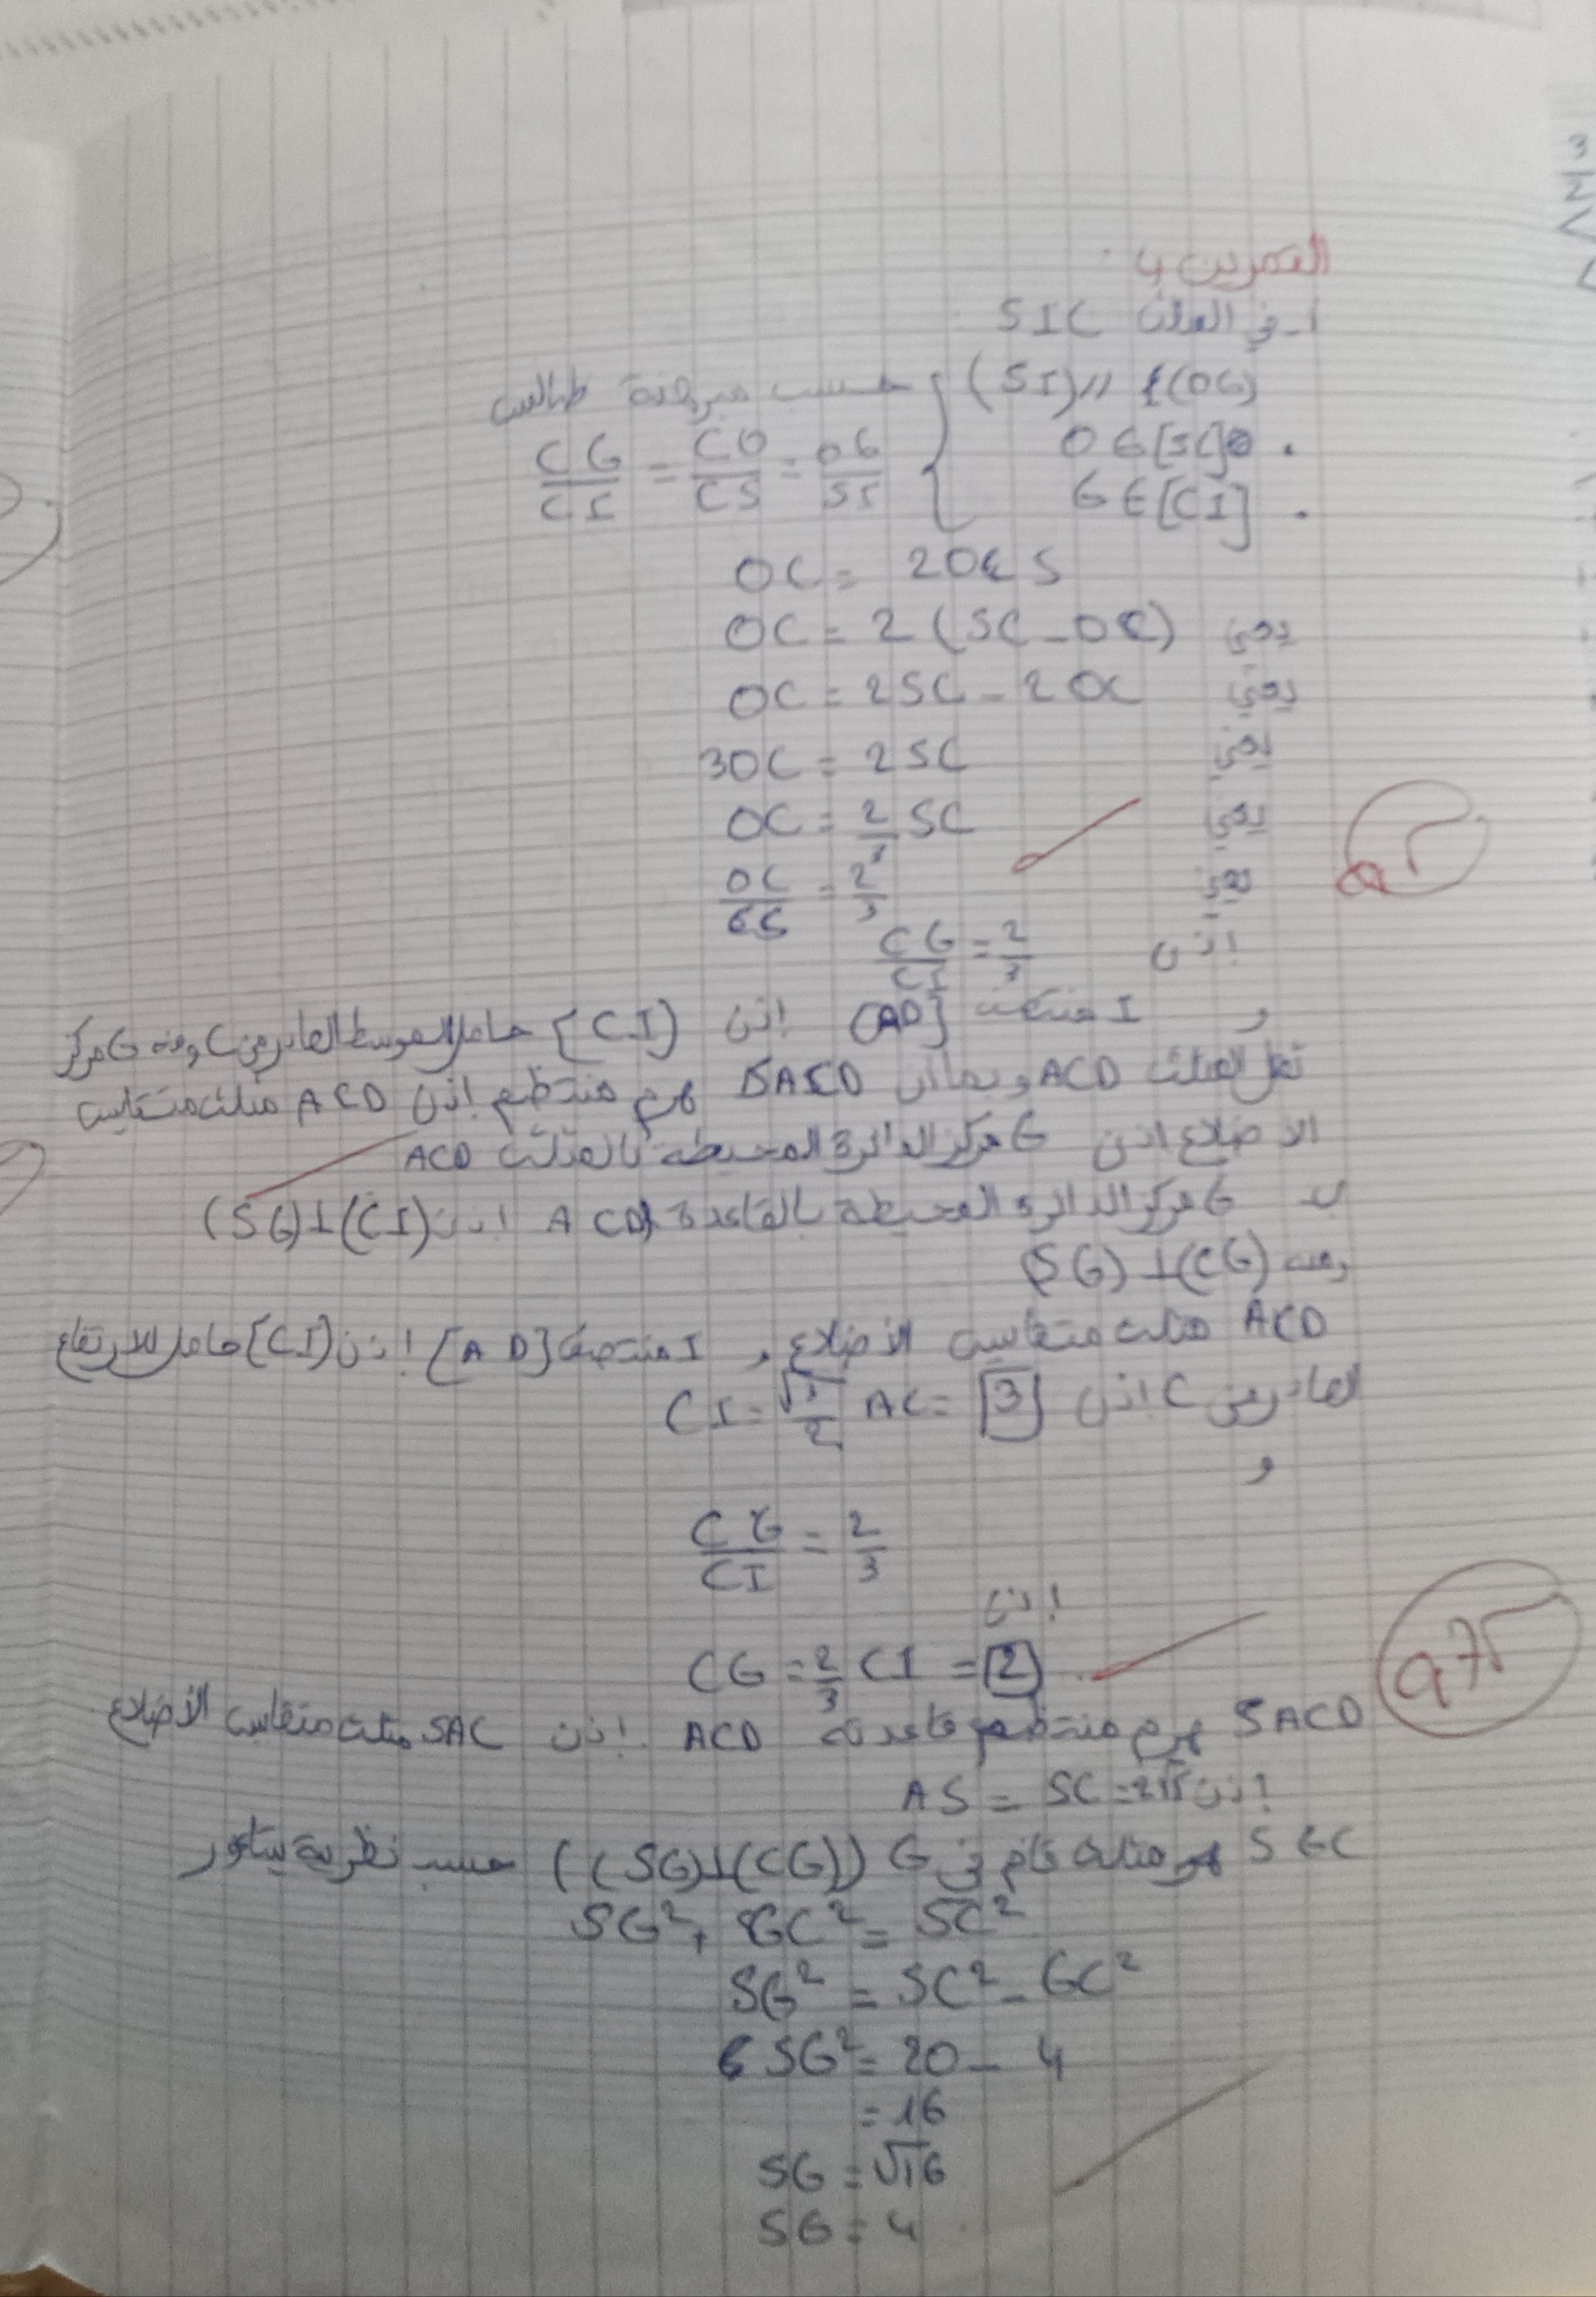 التمرين 4
أ- في المثلث SIC
(SI) // (OG)
حسب مبرهنة طالس
O ∈ [SC] .
G ∈ [CI] .
CG/CI = CO/CS = OG/SI
OC = 2OS
يعني OC = 2 (SC - OC)
يعني OC = 2SC - 2OC
يعني 3OC = 2SC
يعني OC = 2/3 SC
يعني OC/CS = 2/3
إذن CG/CI = 2/3
و I منتصف [AD] إذن [CI) حامل الموسط الصادر من C ومنه G مركز
ثقل المثلث ACD وبما أن SACD هرم منتظم إذن ACD مثلث متقايس
الأضلاع إذن G مركز الدائرة المحيطة بالمثلث ACD
ب G مركز الدائرة المحيطة بالقاعدة ACD إذن (SG)⊥(CI)
ومنه (SG)⊥(CG)
ACD مثلث متقايس الأضلاع و I منتصف [AD] إذن [CI) حامل للارتفاع
الصادر من C إذن CI = √3/2 AC = 3
و
CG/CI = 2/3
إذن
CG = 2/3 CI = 2
SACD هرم منتظم قاعدته ACD إذن SAC مثلث متقايس الأضلاع
إذن AS = SC = 2√5
SGC مثلث قائم في G ((SG)⊥(CG)) حسب نظرية بيتاغور
SG² + GC² = SC²
SG² = SC² - GC²
SG² = 20 - 4
= 16
SG = √16
SG = 4
0,75